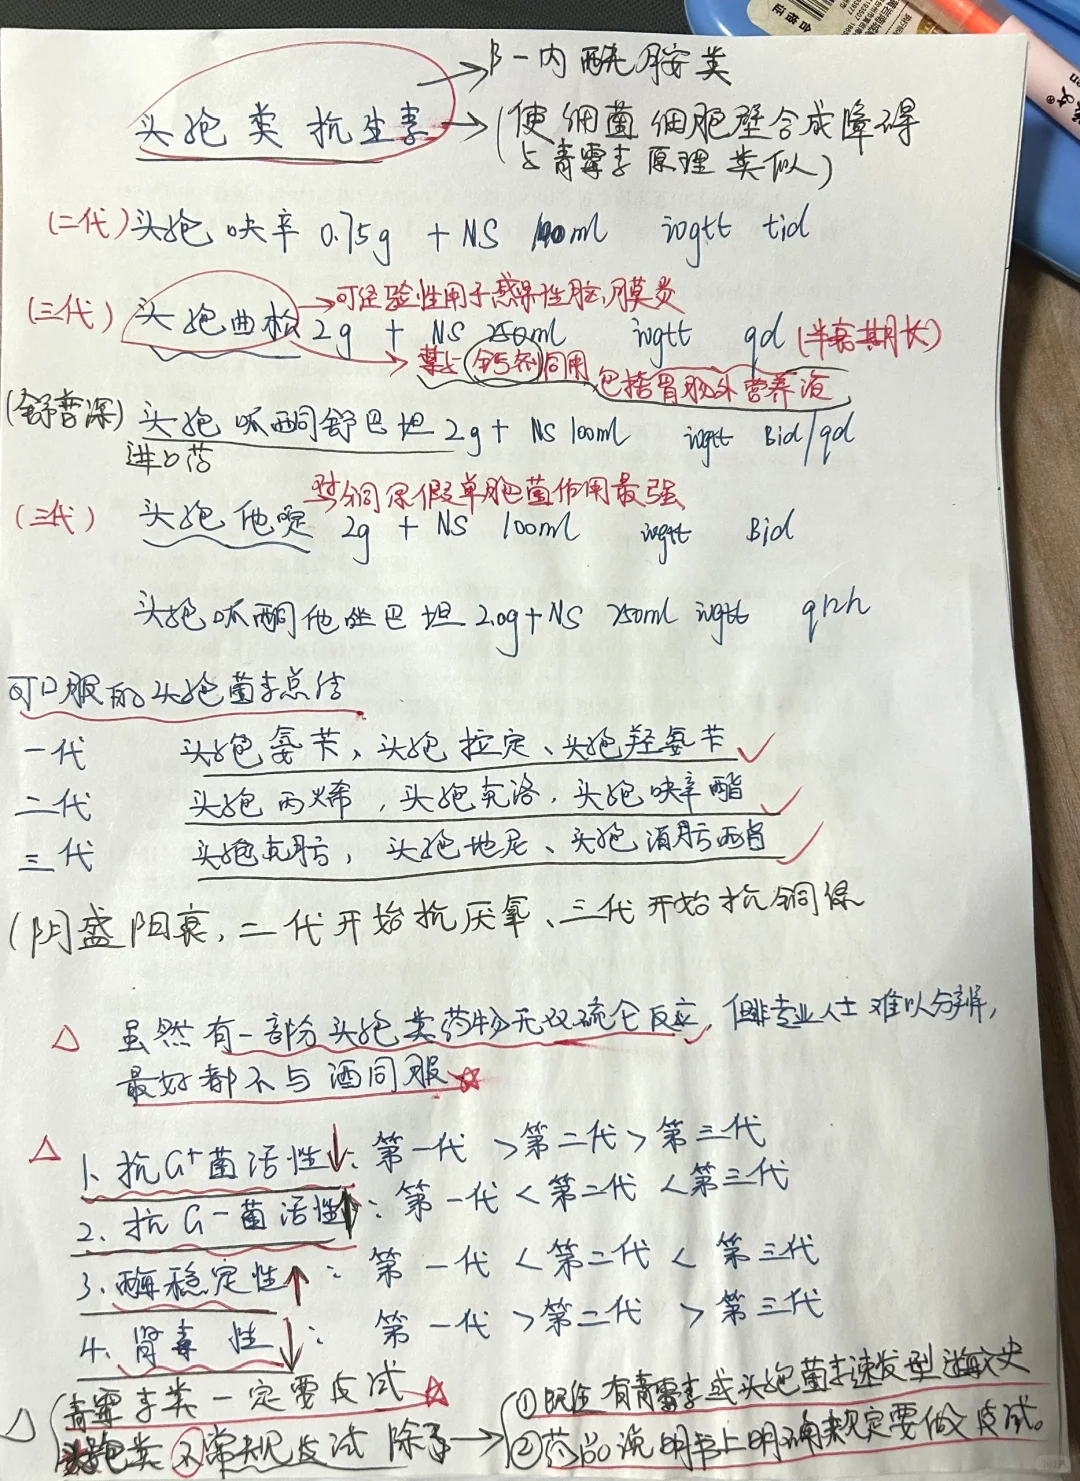 β-内酰胺类
头孢类抗生素 → (使细菌细胞壁合成障碍
与青霉素原理类似)
(二代) 头孢呋辛 0.75g + NS 100ml ivgtt tid
→可经验性用于感染性脑膜炎
(三代) 头孢曲松 2g + NS 250ml ivgtt qd (半衰期长)
→禁与钙剂同用 包括胃肠外营养液
(舒普深) 头孢哌酮舒巴坦 2g + NS 100ml ivgtt Bid/qd
进口药
对铜绿假单胞菌作用最强
(三代) 头孢他啶 2g + NS 100ml ivgtt Bid
头孢哌酮他唑巴坦 2.0g + NS 250ml ivgtt q12h
可口服的头孢菌素总结
一代 头孢氨苄、头孢拉定、头孢羟氨苄 ✓
二代 头孢丙烯，头孢克洛，头孢呋辛酯 ✓
三代 头孢克肟，头孢地尼、头孢泊肟酯 ✓
(阴盛阳衰，二代开始抗厌氧、三代开始抗铜绿
△ 虽然有一部分头孢类药物无双硫仑反应，但非专业人士难以分辨，
最好都不与酒同服 ☆
△ 1、抗G+菌活性↓：第一代 > 第二代 > 第三代
2、抗G-菌活性↑：第一代 < 第二代 < 第三代
3、酶稳定性↑：第一代 < 第二代 < 第三代
4、肾毒性↓：第一代 > 第二代 > 第三代
△ (青霉素类一定要皮试 ☆
头孢类不常规皮试 除了 →
①既往有青霉素或头孢菌素速发型过敏史
②药品说明书上明确规定要做皮试。
合格证